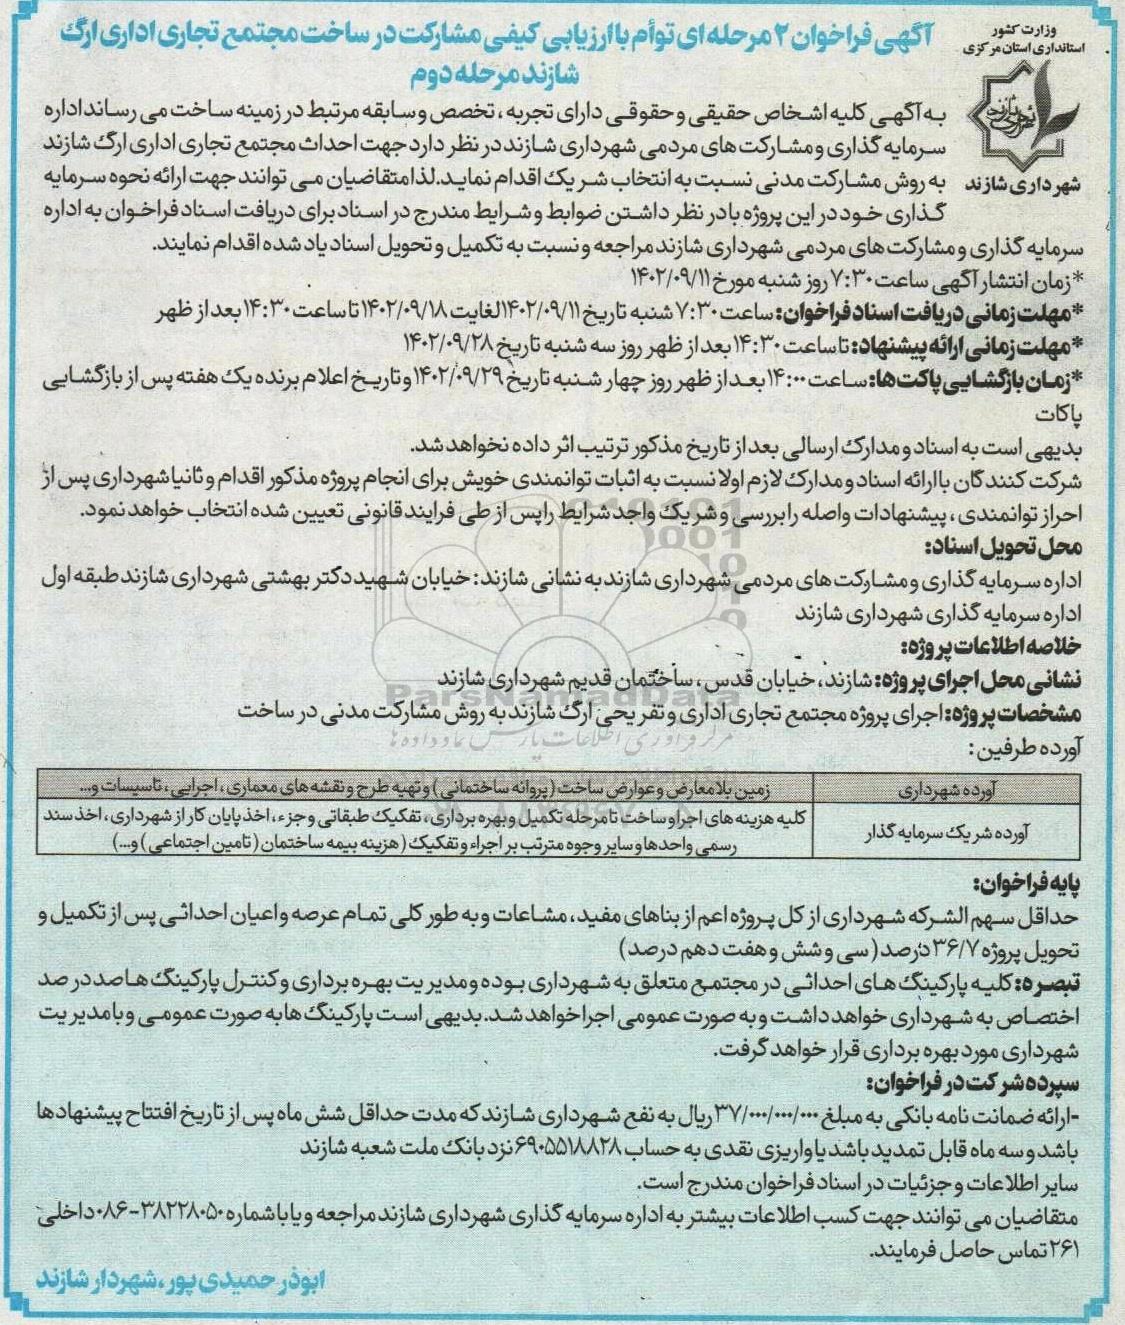 وزارت کشور
استانداری استان مرکزی
شهرداری شازند
آگهی فراخوان ۲ مرحله ای توأم با ارزیابی کیفی مشارکت در ساخت مجتمع تجاری اداری ارگ
شازند مرحله دوم
به آگهی کلیه اشخاص حقیقی و حقوقی دارای تجربه، تخصص و سابقه مرتبط در زمینه ساخت می رساند اداره
سرمایه گذاری و مشارکت های مردمی شهرداری شازند در نظر دارد جهت احداث مجتمع تجاری اداری ارگ شازند
به روش مشارکت مدنی نسبت به انتخاب شریک اقدام نماید. لذا متقاضیان می توانند جهت ارائه نحوه سرمایه
گذاری خود در این پروژه با در نظر داشتن ضوابط و شرایط مندرج در اسناد برای دریافت اسناد فراخوان به اداره
سرمایه گذاری و مشارکت های مردمی شهرداری شازند مراجعه و نسبت به تکمیل و تحویل اسناد یاد شده اقدام نمایند.
*زمان انتشار آگهی ساعت ۷:۳۰ روز شنبه مورخ ۱۴۰۲/۰۹/۱۱
*مهلت زمانی دریافت اسناد فراخوان: ساعت ۷:۳۰ شنبه تاریخ ۱۴۰۲/۰۹/۱۱ لغایت ۱۴۰۲/۰۹/۱۸ تا ساعت ۱۴:۳۰ بعد از ظهر
*مهلت زمانی ارائه پیشنهاد: تا ساعت ۱۴:۳۰ بعد از ظهر روز سه شنبه تاریخ ۱۴۰۲/۰۹/۲۸
*زمان بازگشایی پاکت ها: ساعت ۱۴:۰۰ بعد از ظهر روز چهار شنبه تاریخ ۱۴۰۲/۰۹/۲۹ و تاریخ اعلام برنده یک هفته پس از بازگشایی
پاکات
بدیهی است به اسناد و مدارک ارسالی بعد از تاریخ مذکور ترتیب اثر داده نخواهد شد.
شرکت کنندگان با ارائه اسناد و مدارک لازم اولا نسبت به اثبات توانمندی خویش برای انجام پروژه مذکور اقدام و ثانیا شهرداری پس از
احراز توانمندی، پیشنهادات واصله را بررسی و شریک واجد شرایط را پس از طی فرایند قانونی تعیین شده انتخاب خواهد نمود.
محل تحویل اسناد:
اداره سرمایه گذاری و مشارکت های مردمی شهرداری شازند به نشانی شازند: خیابان شهید دکتر بهشتی شهرداری شازند طبقه اول
اداره سرمایه گذاری شهرداری شازند
خلاصه اطلاعات پروژه:
نشانی محل اجرای پروژه: شازند، خیابان قدس، ساختمان قدیم شهرداری شازند
مشخصات پروژه: اجرای پروژه مجتمع تجاری اداری و تفریحی ارگ شازند به روش مشارکت مدنی در ساخت
آورده طرفین:
آورده شهرداری
زمین بلامعارض و عوارض ساخت (پروانه ساختمانی) و تهیه طرح و نقشه های معماری، اجرایی، تاسیسات و...
آورده شریک سرمایه گذار
کلیه هزینه های اجرا و ساخت تا مرحله تکمیل و بهره برداری، تفکیک طبقاتی و جزء، اخذ پایان کار از شهرداری، اخذ سند
رسمی واحدها و سایر وجوه مترتب بر اجراء و تفکیک (هزینه بیمه ساختمان (تامین اجتماعی) و...)
پایه فراخوان:
حداقل سهم الشرکه شهرداری از کل پروژه اعم از بناهای مفید، مشاعات و به طور کلی تمام عرصه و اعیان احداثی پس از تکمیل و
تحویل پروژه ۳۶/۷ درصد (سی و شش و هفت دهم درصد)
تبصره: کلیه پارکینگ های احداثی در مجتمع متعلق به شهرداری بوده و مدیریت بهره برداری و کنترل پارکینگ ها صد در صد
اختصاص به شهرداری خواهد داشت و به صورت عمومی اجرا خواهد شد. بدیهی است پارکینگ ها به صورت عمومی و با مدیریت
شهرداری مورد بهره برداری قرار خواهد گرفت.
سپرده شرکت در فراخوان:
-ارائه ضمانت نامه بانکی به مبلغ ۳۷/۰۰۰/۰۰۰/۰۰۰ ریال به نفع شهرداری شازند که مدت حداقل شش ماه پس از تاریخ افتتاح پیشنهادها
باشد و سه ماه قابل تمدید باشد یا واریزی نقدی به حساب ۶۹۰۵۵۱۸۸۲۸ نزد بانک ملت شعبه شازند
سایر اطلاعات و جزئیات در اسناد فراخوان مندرج است.
متقاضیان می توانند جهت کسب اطلاعات بیشتر به اداره سرمایه گذاری شهرداری شازند مراجعه و یا با شماره ۳۸۲۲۸۰۵۰-۰۸۶ داخلی
۲۶۱ تماس حاصل فرمایند.
ابوذر حمیدی پور، شهردار شازند
ParsNamadData